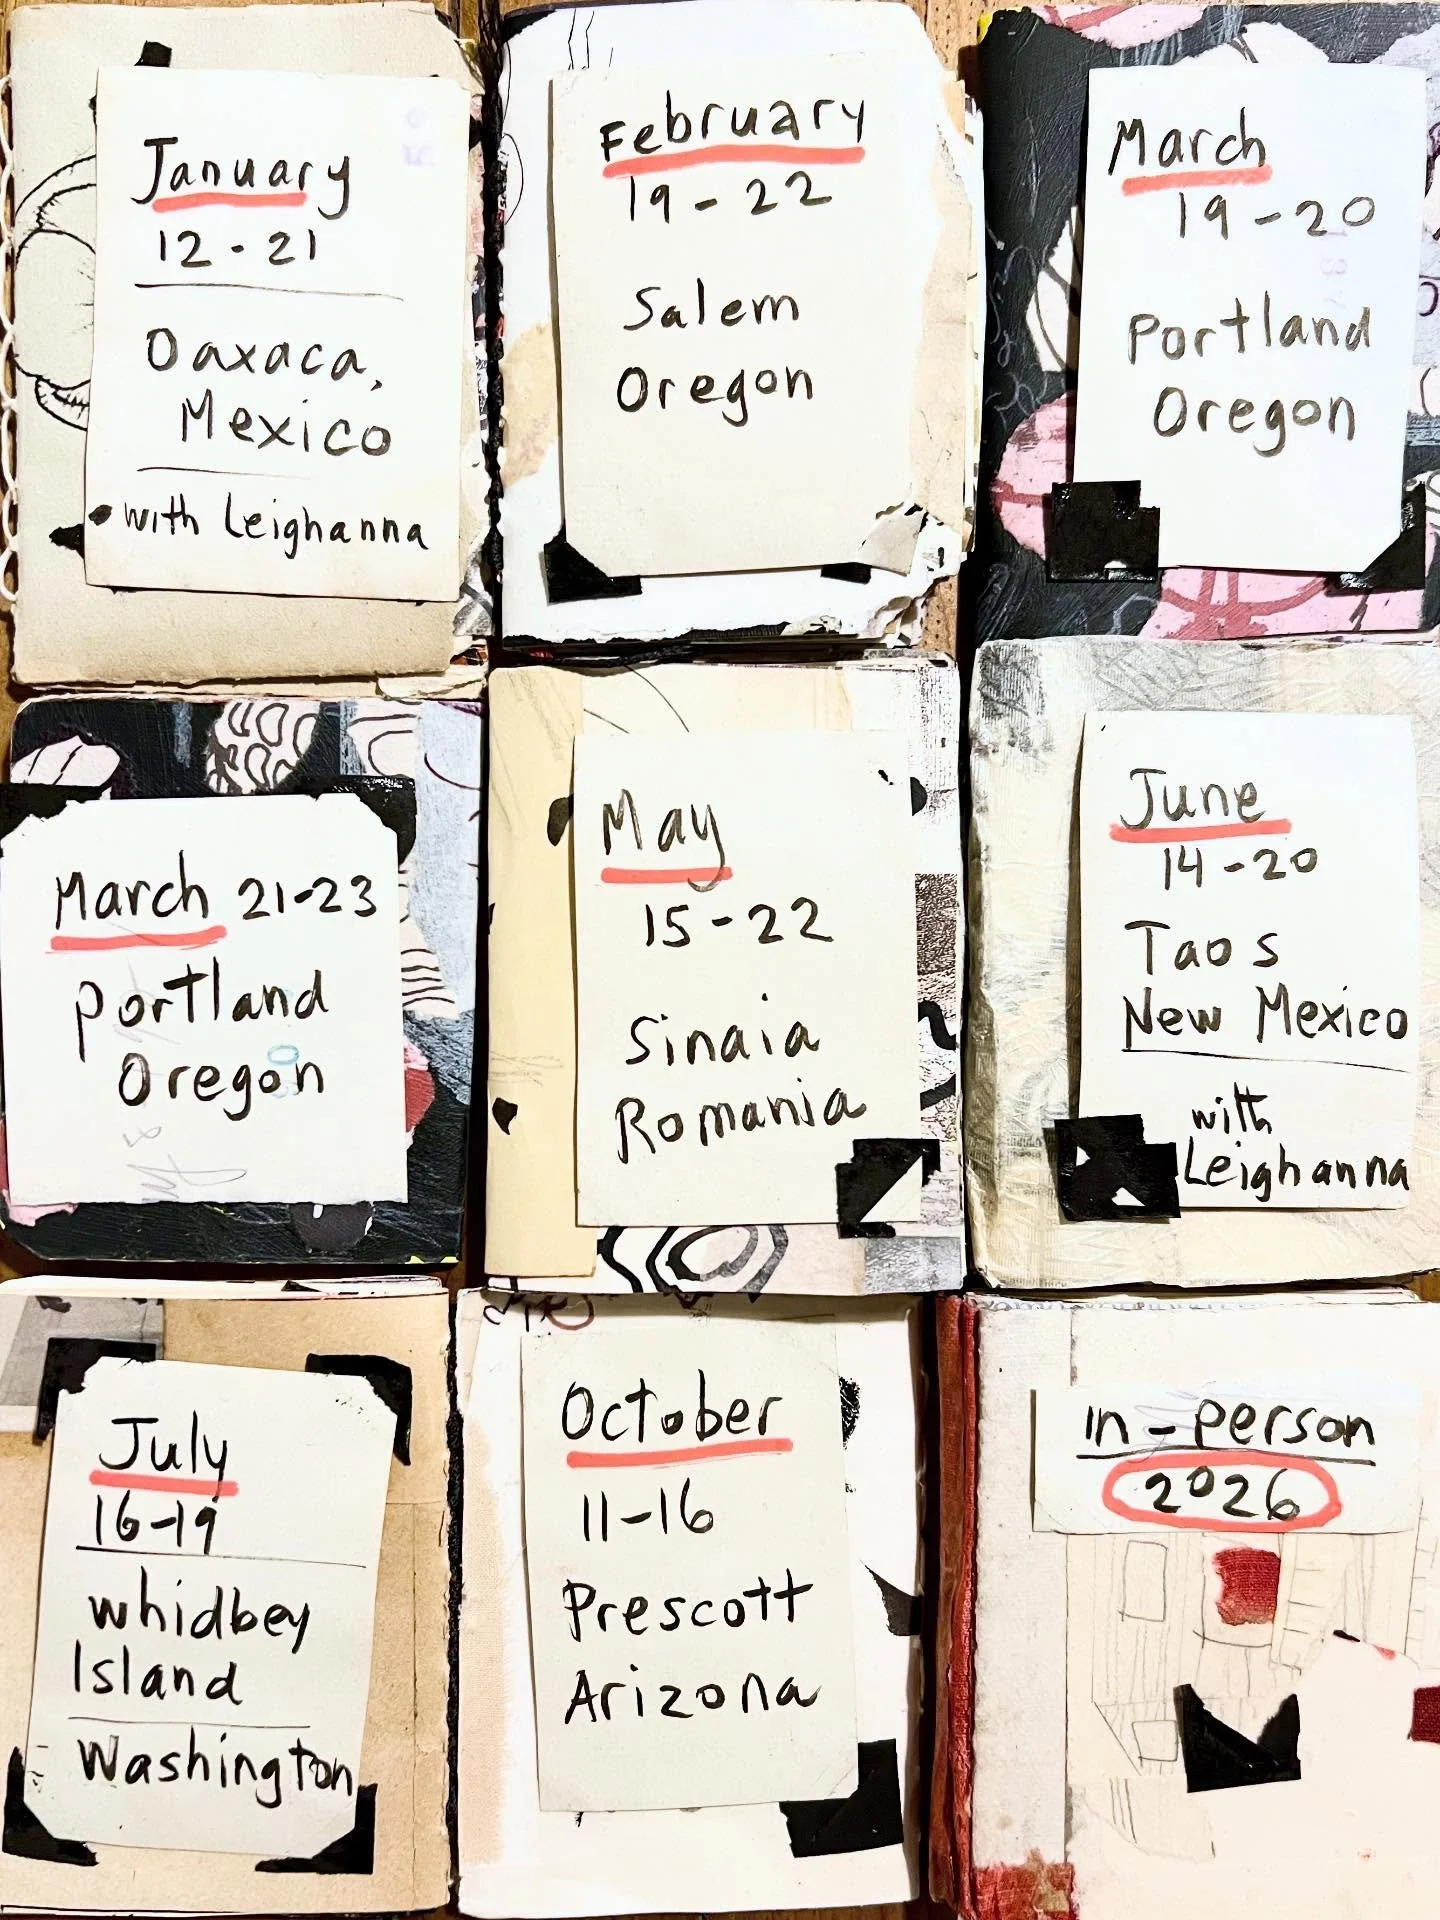 January
12 - 21
Oaxaca,
Mexico
with Leighanna
February
19 - 22
Salem
Oregon
March
19 - 20
Portland
Oregon
March 21-23
Portland
Oregon
May
15 - 22
Sinaia
Romania
June
14 - 20
Taos
New Mexico
with
Leighanna
July
16-19
Whidbey
Island
Washington
October
11-16
Prescott
Arizona
in-person
2026